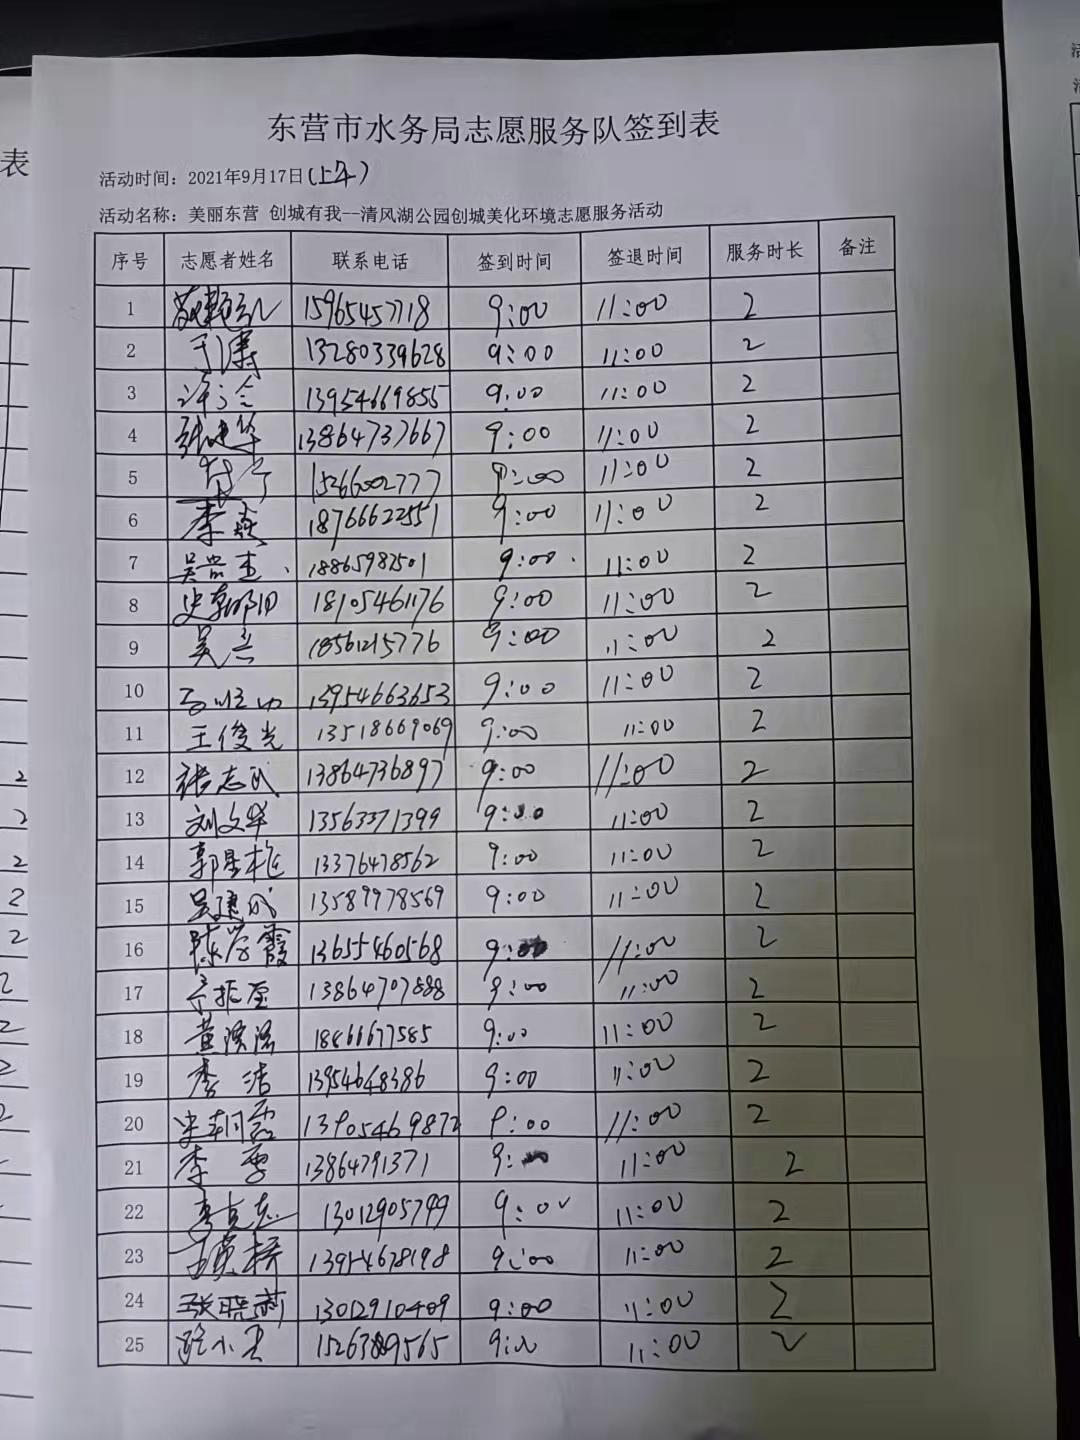 东营市水务局志愿服务队签到表
活动时间：2021年9月17日(上午)
活动名称：美丽东营 创城有我--清风湖公园创城美化环境志愿服务活动
序号 志愿者姓名 联系电话 签到时间 签退时间 服务时长 备注
1 15965457718 9:00 11:00 2
2 于涛 13280339628 9:00 11:00 2
3 13954669855 9:00 11:00 2
4 张建华 13864737667 9:00 11:00 2
5 15266002777 9:00 11:00 2
6 李焱 18766622551 9:00 11:00 2
7 18865982501 9:00 11:00 2
8 18105461176 9:00 11:00 2
9 18561215776 9:00 11:00 2
10 13954663653 9:00 11:00 2
11 王俊光 13518669069 9:00 11:00 2
12 张志民 13864736897 9:00 11:00 2
13 刘文华 13563371399 9:00 11:00 2
14 13376478562 9:00 11:00 2
15 吴建成 13589978569 9:00 11:00 2
16 陈学霞 13655460568 9:00 11:00 2
17 13864707888 9:00 11:00 2
18 18466677585 9:00 11:00 2
19 李洁 13954648386 9:00 11:00 2
20 13905469872 9:00 11:00 2
21 李雪 13864791371 9: 11:00 2
22 李志 13012905799 9:00 11:00 2
23 13954678198 9:00 11:00 2
24 张晓莉 13012910409 9:00 11:00 2
25 9:00 11:00 2
表
2
2
2
2
2
2
2
2
2